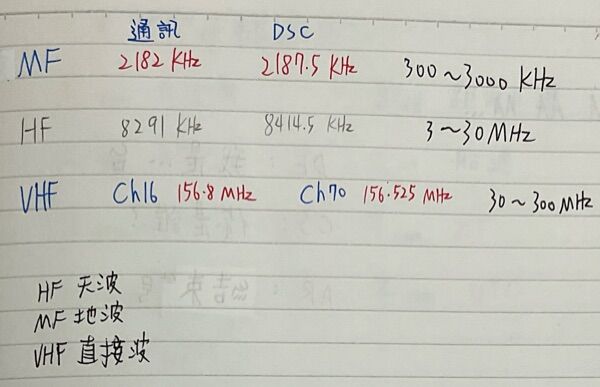 通訊 DSC
MF 2182 KHz 2187.5 KHz 300～3000 KHz
HF 8291 KHz 8414.5 KHz 3～30 MHz
VHF Ch16 156.8 MHz Ch70 156.525 MHz 30～300 MHz
HF 天波
MF 地波
VHF 直接波